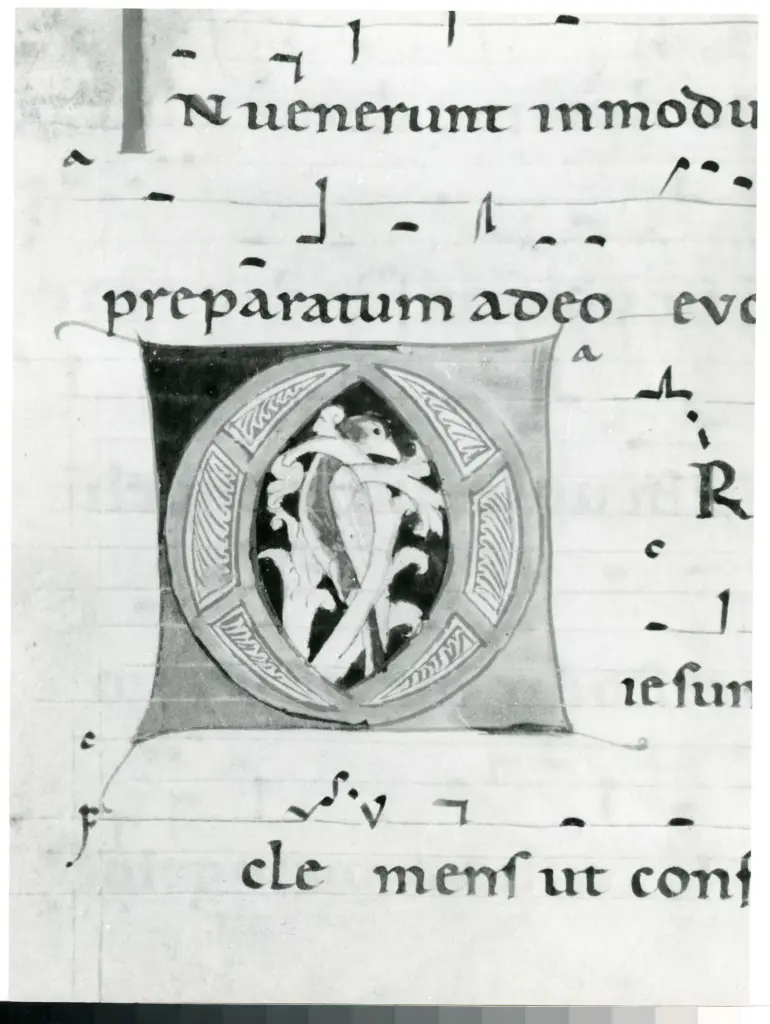 Nuenerunt inmodu
a
preparatum adeo evo
a
O
R
c
iesum
c
F
cle mens ut cons